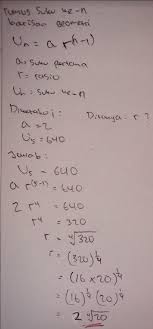 Rumus Suku ke-n
barisan geometri
Uₙ = a r⁽ⁿ⁻¹⁾
a = suku pertama
r = rasio
Uₙ = suku ke-n
Diketahui : Ditanya : r ?
a = 2
U₅ = 640
Jawab :
U₅ = 640
a r⁽⁵⁻¹⁾ = 640
2 r⁴ = 640
r⁴ = 320
r = ⁴√320
r = (320)^¼
= (16 × 20)^¼
= (16)^¼ (20)^¼
= 2 ⁴√20